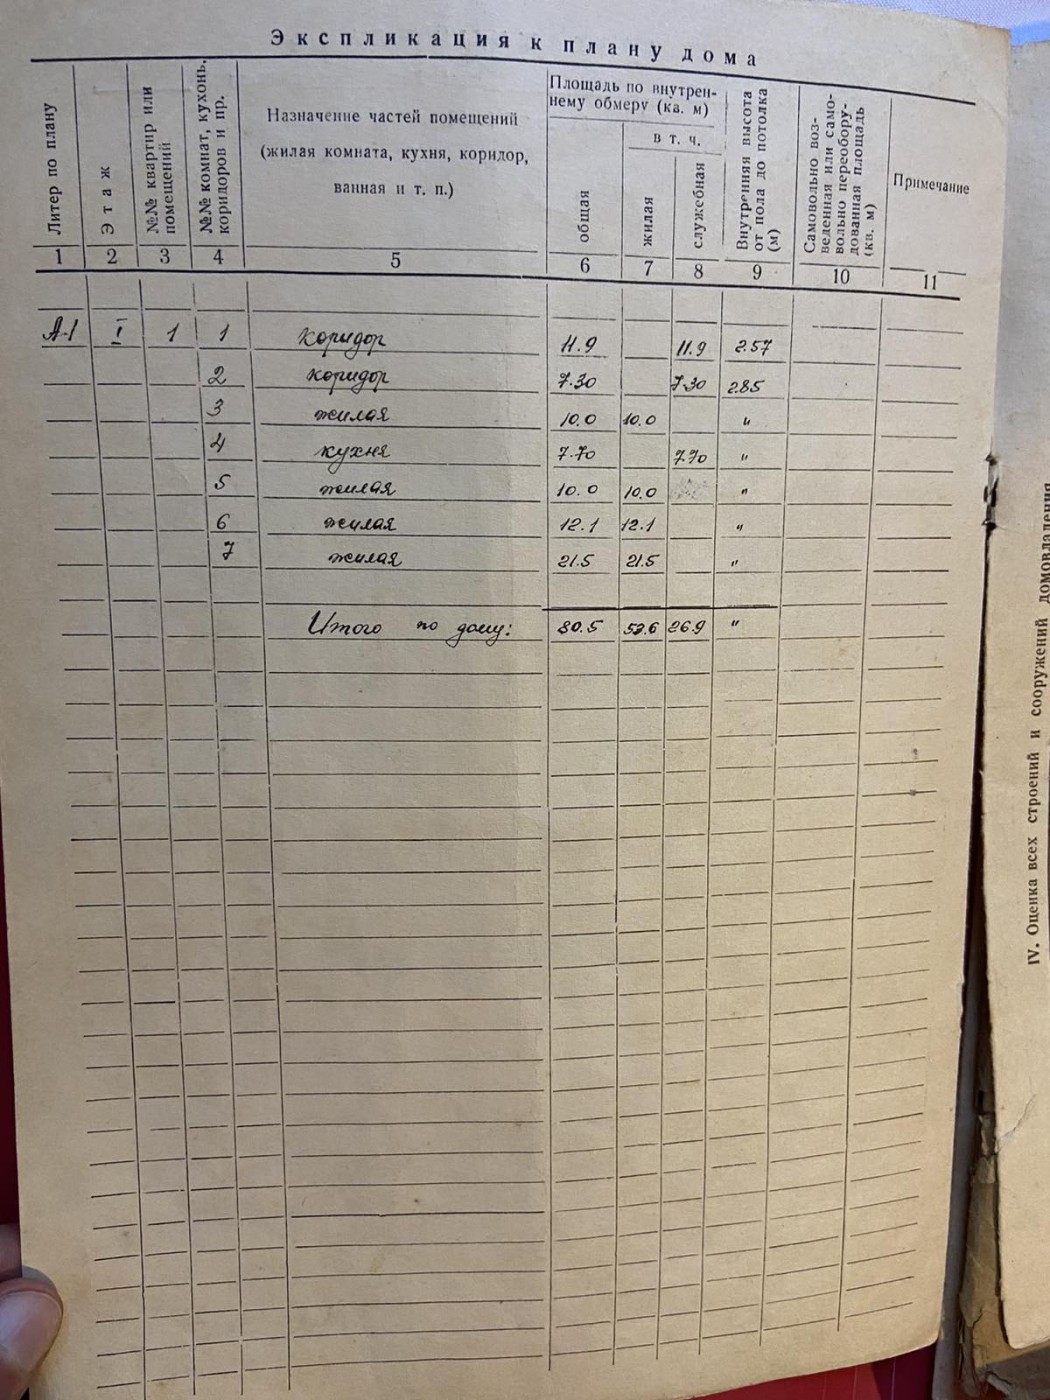 Экспликация к плану дома
Литер по плану
Этаж
№№ квартир или
помещений
№№ комнат, кухонь,
коридоров и пр.
Назначение частей помещений
(жилая комната, кухня, коридор,
ванная и т. п.)
Площадь по внутрен-
нему обмеру (кв. м)
общая
в т. ч.
жилая
служебная
Внутренняя высота
от пола до потолка
(м)
Самовольно воз-
веденная или само-
вольно переобору-
дованная площадь
(кв. м)
Примечание
1 2 3 4 5 6 7 8 9 10 11
А-1 I 1 1 коридор 11.9 11.9 2.57
2 коридор 7.30 7.30 2.85
3 жилая 10.0 10.0 "
4 кухня 7.70 7.70 "
5 жилая 10.0 10.0 "
6 жилая 12.1 12.1 "
7 жилая 21.5 21.5 "
Итого по дому: 80.5 53.6 26.9 "
IV. Оценка всех строений и сооружений домовладения